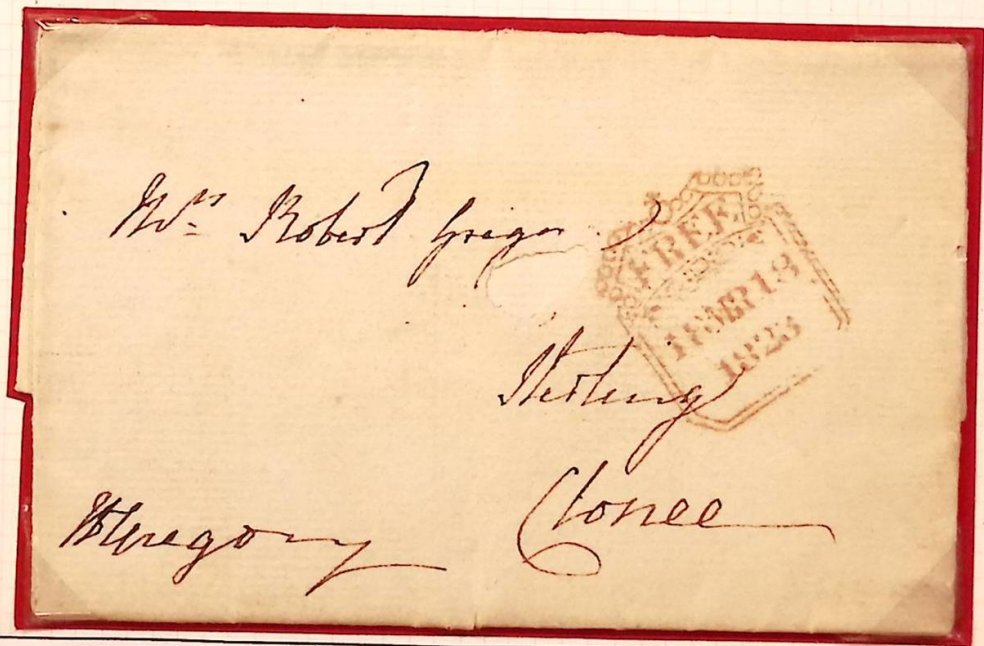 Mrs Robert Gregory
FREE
18 MR 18
1823
Sterling
Clonee
WGregory